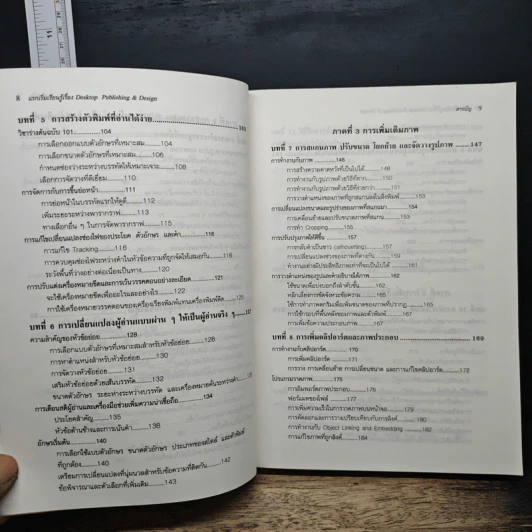 11
8 แรกเริ่มเรียนรู้เรื่อง Desktop Publishing & Design
บทที่ 5 การสร้างตัวพิมพ์ที่อ่านได้ง่าย
วิชาร่างต้นฉบับ 101..............104
การเลือกออกแบบตัวอักษรที่เหมาะสม..........104
การเลือกขนาดตัวอักษรที่เหมาะสม..........106
กำหนดช่องว่างระหว่างบรรทัดให้เหมาะเจาะ..........108
เลือกการจัดวางที่ดีเยี่ยม..........110
การจัดการกับการขึ้นย่อหน้า..........111
การย่อหน้าในบรรทัดแรกให้ดูดี..........112
เพิ่มระยะระหว่างพารากราฟ..........114
ทางเลือกอื่น ๆ ในการจัดพารากราฟ..........115
การแก้ไขเปลี่ยนแปลงช่องไฟของประโยค ตัวอักษร และคำ..........118
การแก้ไข Tracking..........116
การควบคุมช่องไฟระหว่างคำในหัวข้อความที่ถูกจัดให้เสมอกัน
ระวังพื้นที่ว่างอย่างต่อเนื่องเป็นทาง..........120
การปรับแต่งเครื่องหมายขีดและการเว้นวรรคตอนอย่างละเอียด..........121
จะใช้เครื่องหมายขีดเพื่ออะไรและอย่างไร..........122
การใช้เครื่องหมายวรรคตอนของเครื่องเรียงพิมพ์แทนเครื่องพิมพ์ดีด
บทที่ 6 การเปลี่ยนแปลงผู้อ่านแบบผ่าน ๆ ให้เป็นผู้อ่านจริง ๆ
ความสำคัญของหัวข้อย่อย..........126
การเลือกแบบตัวอักษรที่เหมาะสมสำหรับหัวข้อย่อย..........128
การหาตำแหน่งสำหรับหัวข้อย่อย..........130
การจัดวางหัวข้อย่อย..........132
เสริมหัวข้อย่อยด้วยเส้นบรรทัด..........132
ขนาด ระยะช่องว่างระหว่างบรรทัด และเครื่องหมายนำระหว่างคำ
การเตือนสติผู้อ่านและเครื่องมือช่วยเพิ่มความน่าเชื่อถือ..........134
ประโยคสำคัญ..........135
หัวข้อด้านข้างและการเน้นคำ..........138
อักษรเริ่มต้น..........140
การเลือกใช้แบบตัวอักษร ขนาดตัวอักษร ประเภทของสไตล์ และตัวพิมพ์
ที่ถูกต้อง..........140
เตรียมการเปลี่ยนแปลงที่นุ่มนวลสำหรับข้อความที่ติดกัน..........142
ข้อพิจารณาและตัวเลือกที่เพิ่มเติม..........143
สารบัญ 9
ภาคที่ 3 การเพิ่มเติมภาพ
บทที่ 7 การสแกนภาพ ปรับขนาด โยกย้าย และจัดวางรูปภาพ..........147
การทำงานกับภาพ..........148
การสร้างความคาดหวังที่เป็นไปได้..........148
การทำงานกับรูปภาพด้วยวิธีที่ยาก..........150
การทำงานกับรูปภาพด้วยวิธีที่ง่ายกว่า..........151
การวางตำแหน่งของภาพที่ถูกสแกนลงในสิ่งพิมพ์..........153
การเปลี่ยนแปลงขนาดและรูปร่างของภาพที่สแกนมา..........154
การเคลื่อนย้ายและปรับขนาดภาพที่สแกน..........154
การทำ Cropping..........155
การปรับปรุงภาพให้ดีขึ้น..........157
การกลับดำเป็นขาว (silhouetting)..........157
การเปลี่ยนแปลงช่วงของภาพที่ต่างกัน..........159
ทำงานอย่างมีประสิทธิภาพเท่าที่จะเป็นไปได้..........161
การวางตำแหน่งของรูปและคำอธิบายใต้ภาพ..........162
ใช้ขนาดเพื่อบ่งบอกถึงลำดับชั้น..........162
หลีกเลี่ยงการขัดจังหวะข้อความ..........164
ใช้การทำภาพตกริมเพื่อเพิ่มขนาดของภาพที่ปรากฏ..........165
การใช้กรอบที่พื้นหลังของภาพและตัวพิมพ์..........166
การเพิ่มข้อความประกอบภาพ..........167
บทที่ 8 การเพิ่มคลิปอาร์ตและภาพประกอบ..........169
การทำงานกับคลิปอาร์ต..........170
การเพิ่มคลิปอาร์ต..........171
การวาง การเคลื่อนย้าย การเปลี่ยนขนาด และการแก้ไขคลิปอาร์ต..........172
โปรแกรมวาดภาพ..........175
การอิมพอร์ตภาพประกอบ..........176
ฟอร์แมตของไฟล์..........177
การเพิ่มความเร็วในการวาดภาพบนหน้าจอ..........180
การคัดลอกและการวางเปรียบเทียบกับการลิงค์..........180
การทำงานกับ Object Linking and Embedding..........182
การแก้ไขภาพที่ถูกลิงค์..........184